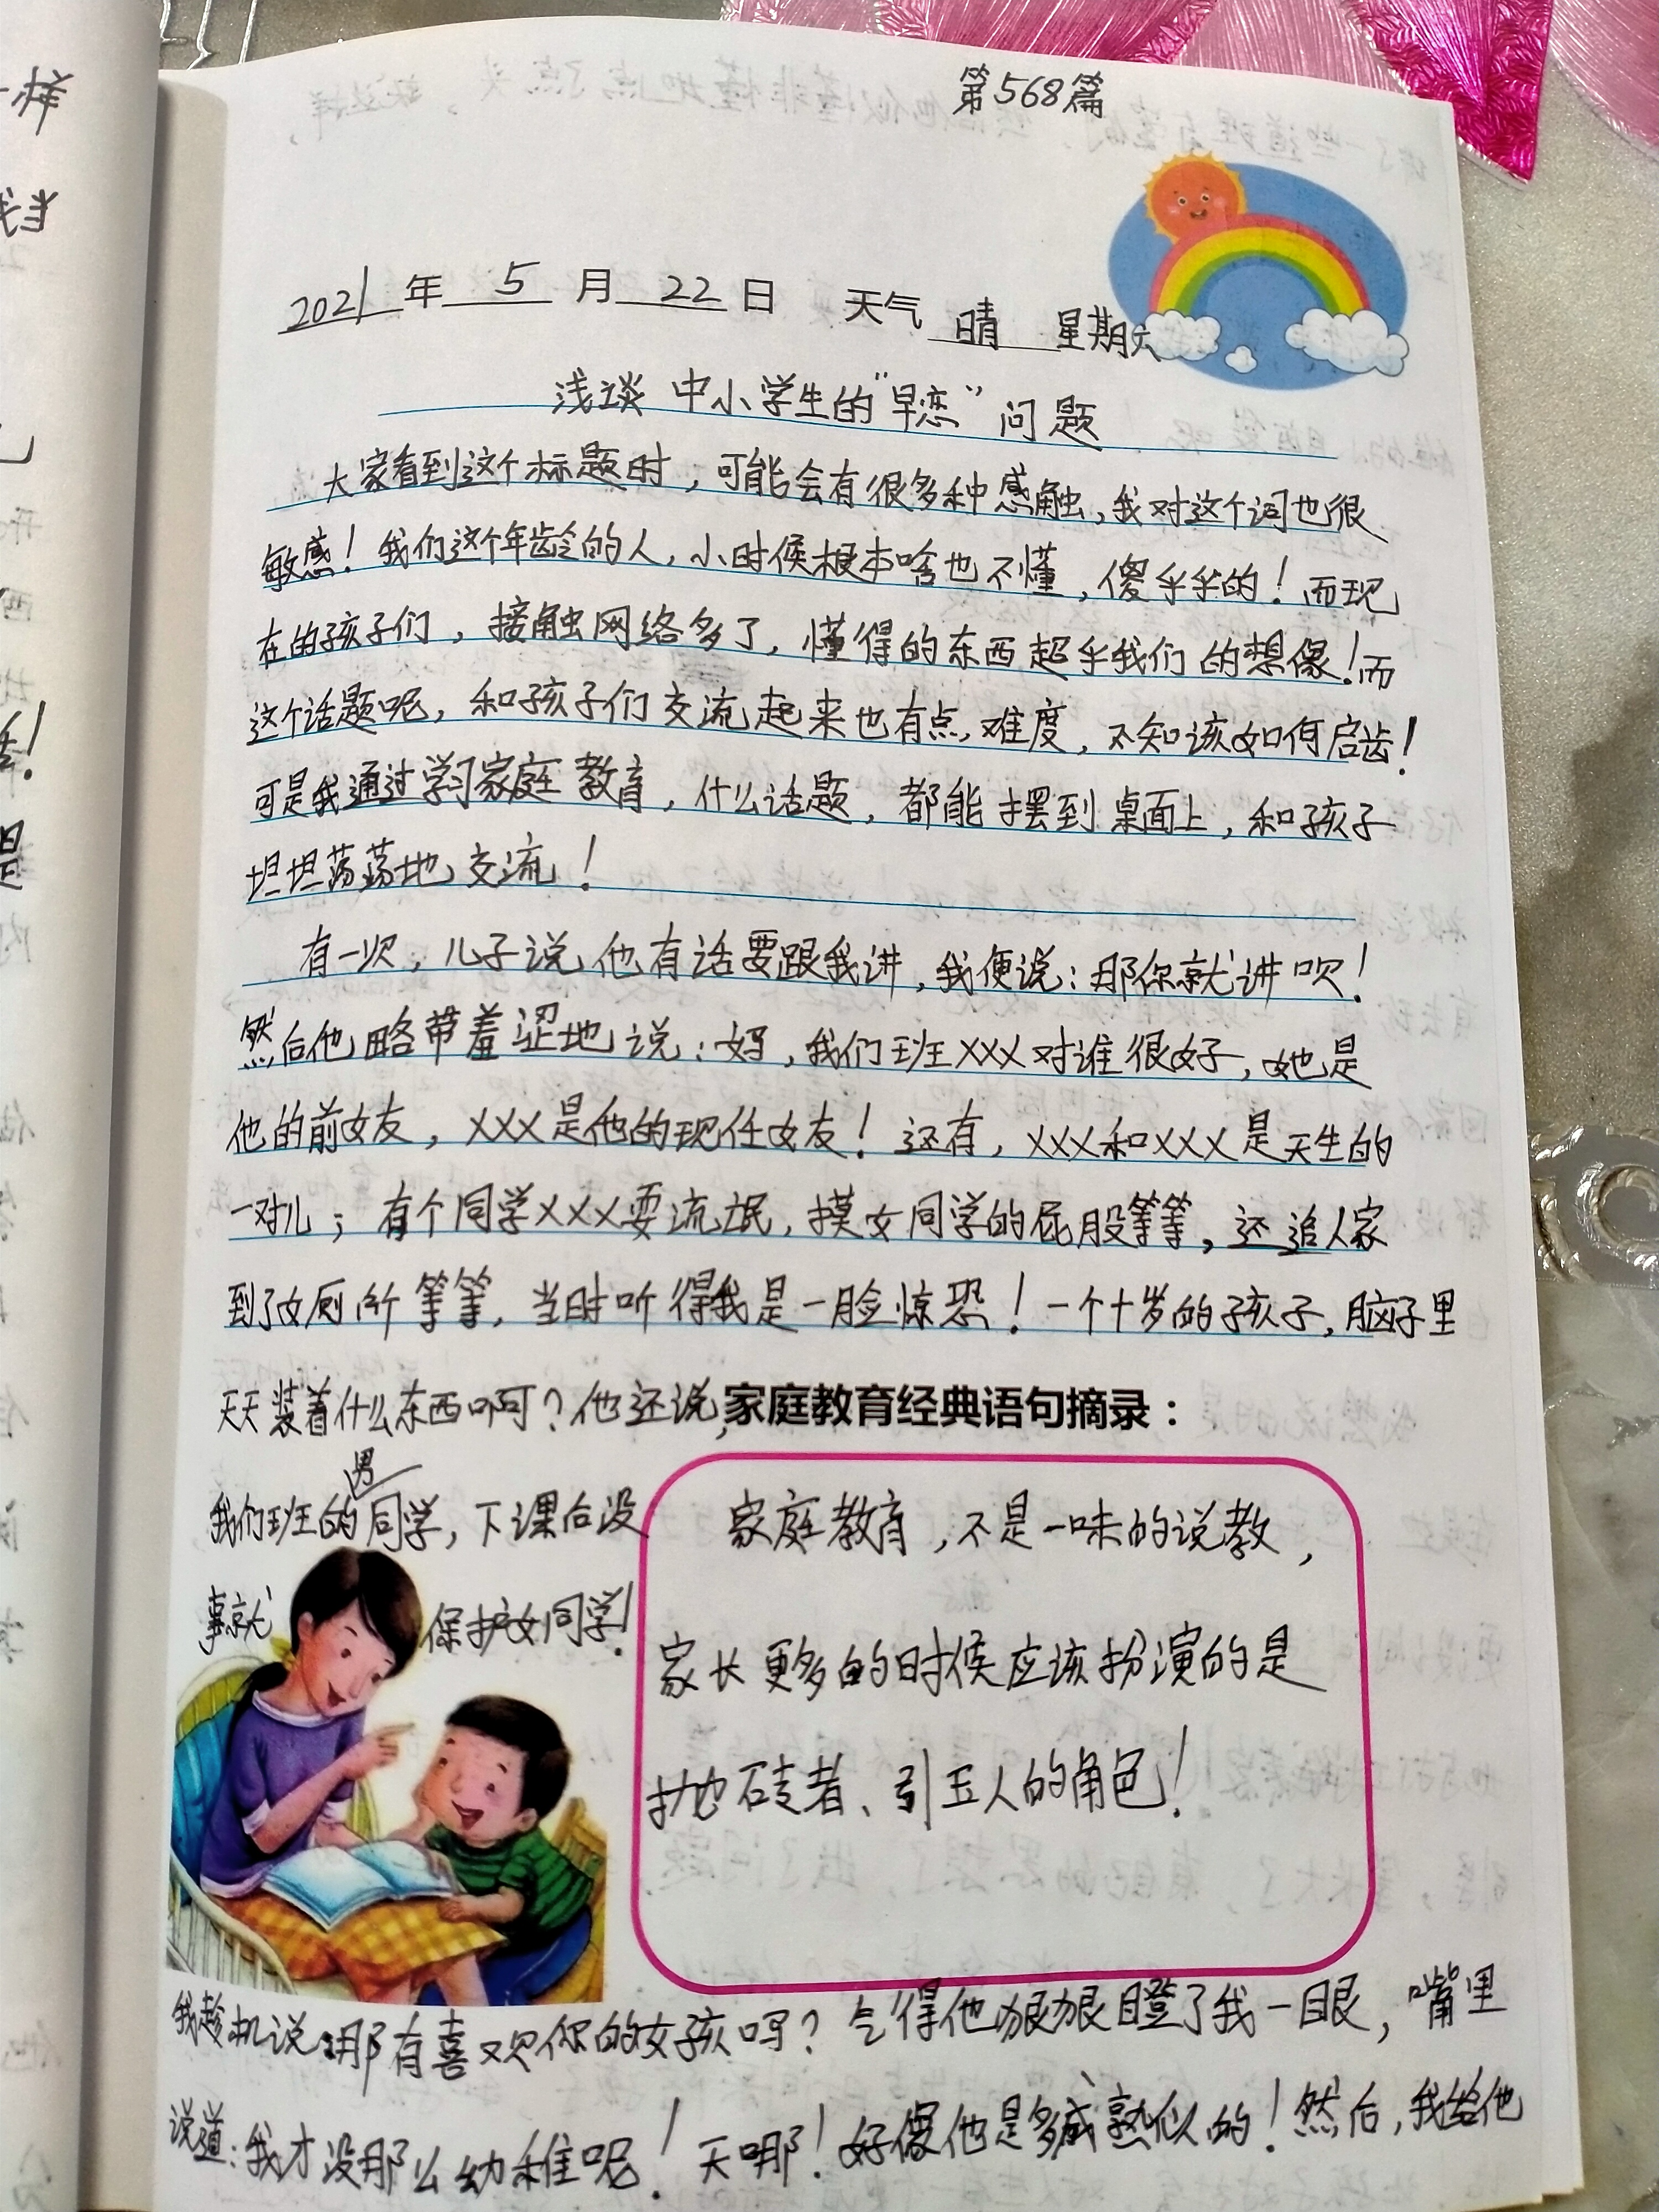 第568篇
2021年 5 月 22 日 天气 晴 星期六
浅谈中小学生的“早恋”问题
大家看到这个标题时，可能会有很多种感触，我对这个词也很
敏感！我们这个年龄的人，小时候根本啥也不懂，傻乎乎的！而现
在的孩子们，接触网络多了，懂得的东西超乎我们的想像！而
这个话题呢，和孩子们交流起来也有点难度，不知该如何启齿！
可是我通过学习家庭教育，什么话题，都能摆到桌面上，和孩子
坦坦荡荡地交流！
有一次，儿子说他有话要跟我讲，我便说：那你就讲呗！
然后他略带羞涩地说：妈，我们班XXX对谁很好，她是
他的前女友，XXX是他的现任女友！还有，XXX和XXX是天生的
一对儿；有个同学XXX耍流氓，摸女同学的屁股等等，还追人家
到了女厕所等等，当时听得我是一脸惊恐！一个十岁的孩子，脑子里
天天装着什么东西啊？他还说，
我们班的男同学，下课后没
事就保护女同学！
家庭教育经典语句摘录：
家庭教育，不是一味的说教，
家长更多的时候应该扮演的是
抛砖者、引玉人的角色！
我趁机说：那有喜欢你的女孩吗？气得他狠狠瞪了我一眼，嘴里
说道：我才没那么幼稚呢！天哪！好像他是多成熟似的！然后，我给他
样
我当